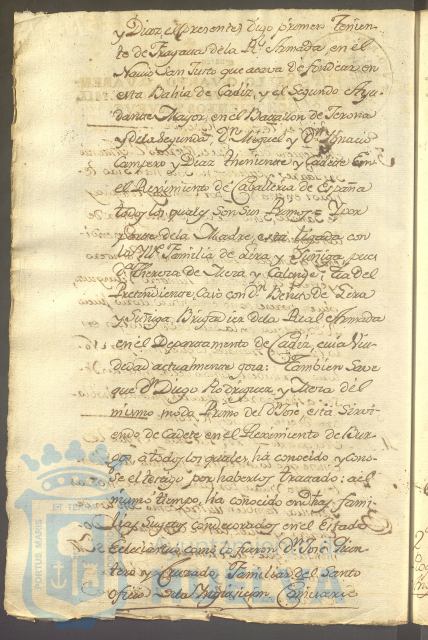 y Diaz, el presente digo primero Tenien-
te de Fragatas de la Rl. Armada, en el
Navio San Justo que acava de fondear en
esta Bahia de Cadiz, y el Segundo Ayu-
dante Mayor, en el Batallon de
y de la Segunda, Dn. Miguel y Dn. Ignacio
Campero y Diaz Theniente, y Cadete en
el Reximiento de Cavalleria de España
todos los quales son sus Primos = Y por
parte de la Madre, está ligada con
la Ille. Familia de Lira y Zuñiga, pues
Da. Thereza de Mera, y Tia del
Pretendiente, Casó con Dn. Benito de Lira
y Zuñiga, de la Real Armada
en el Departamento de Cadiz, cuia Viu-
dedad actualmente goza: Tambien save
que Dn. Diego Rodriguez y Mera del
mismo modo Primo del Dn. Jose, está Sirvi-
endo de Cadete, en el Reximiento de Bur-
gos, a todos los quales, ha conocido y cono-
se el testigo por haberlos tratado: al
mismo tiempo, ha conocido en dhas. fami-
lias Sugetos condecorados en el Estado
Eclesiastico, como lo fueron Dn. Jose
tero y Cruzado Familiar del Santo
Oficio de la Inquisicion, Comisario
PORTUS MARIS